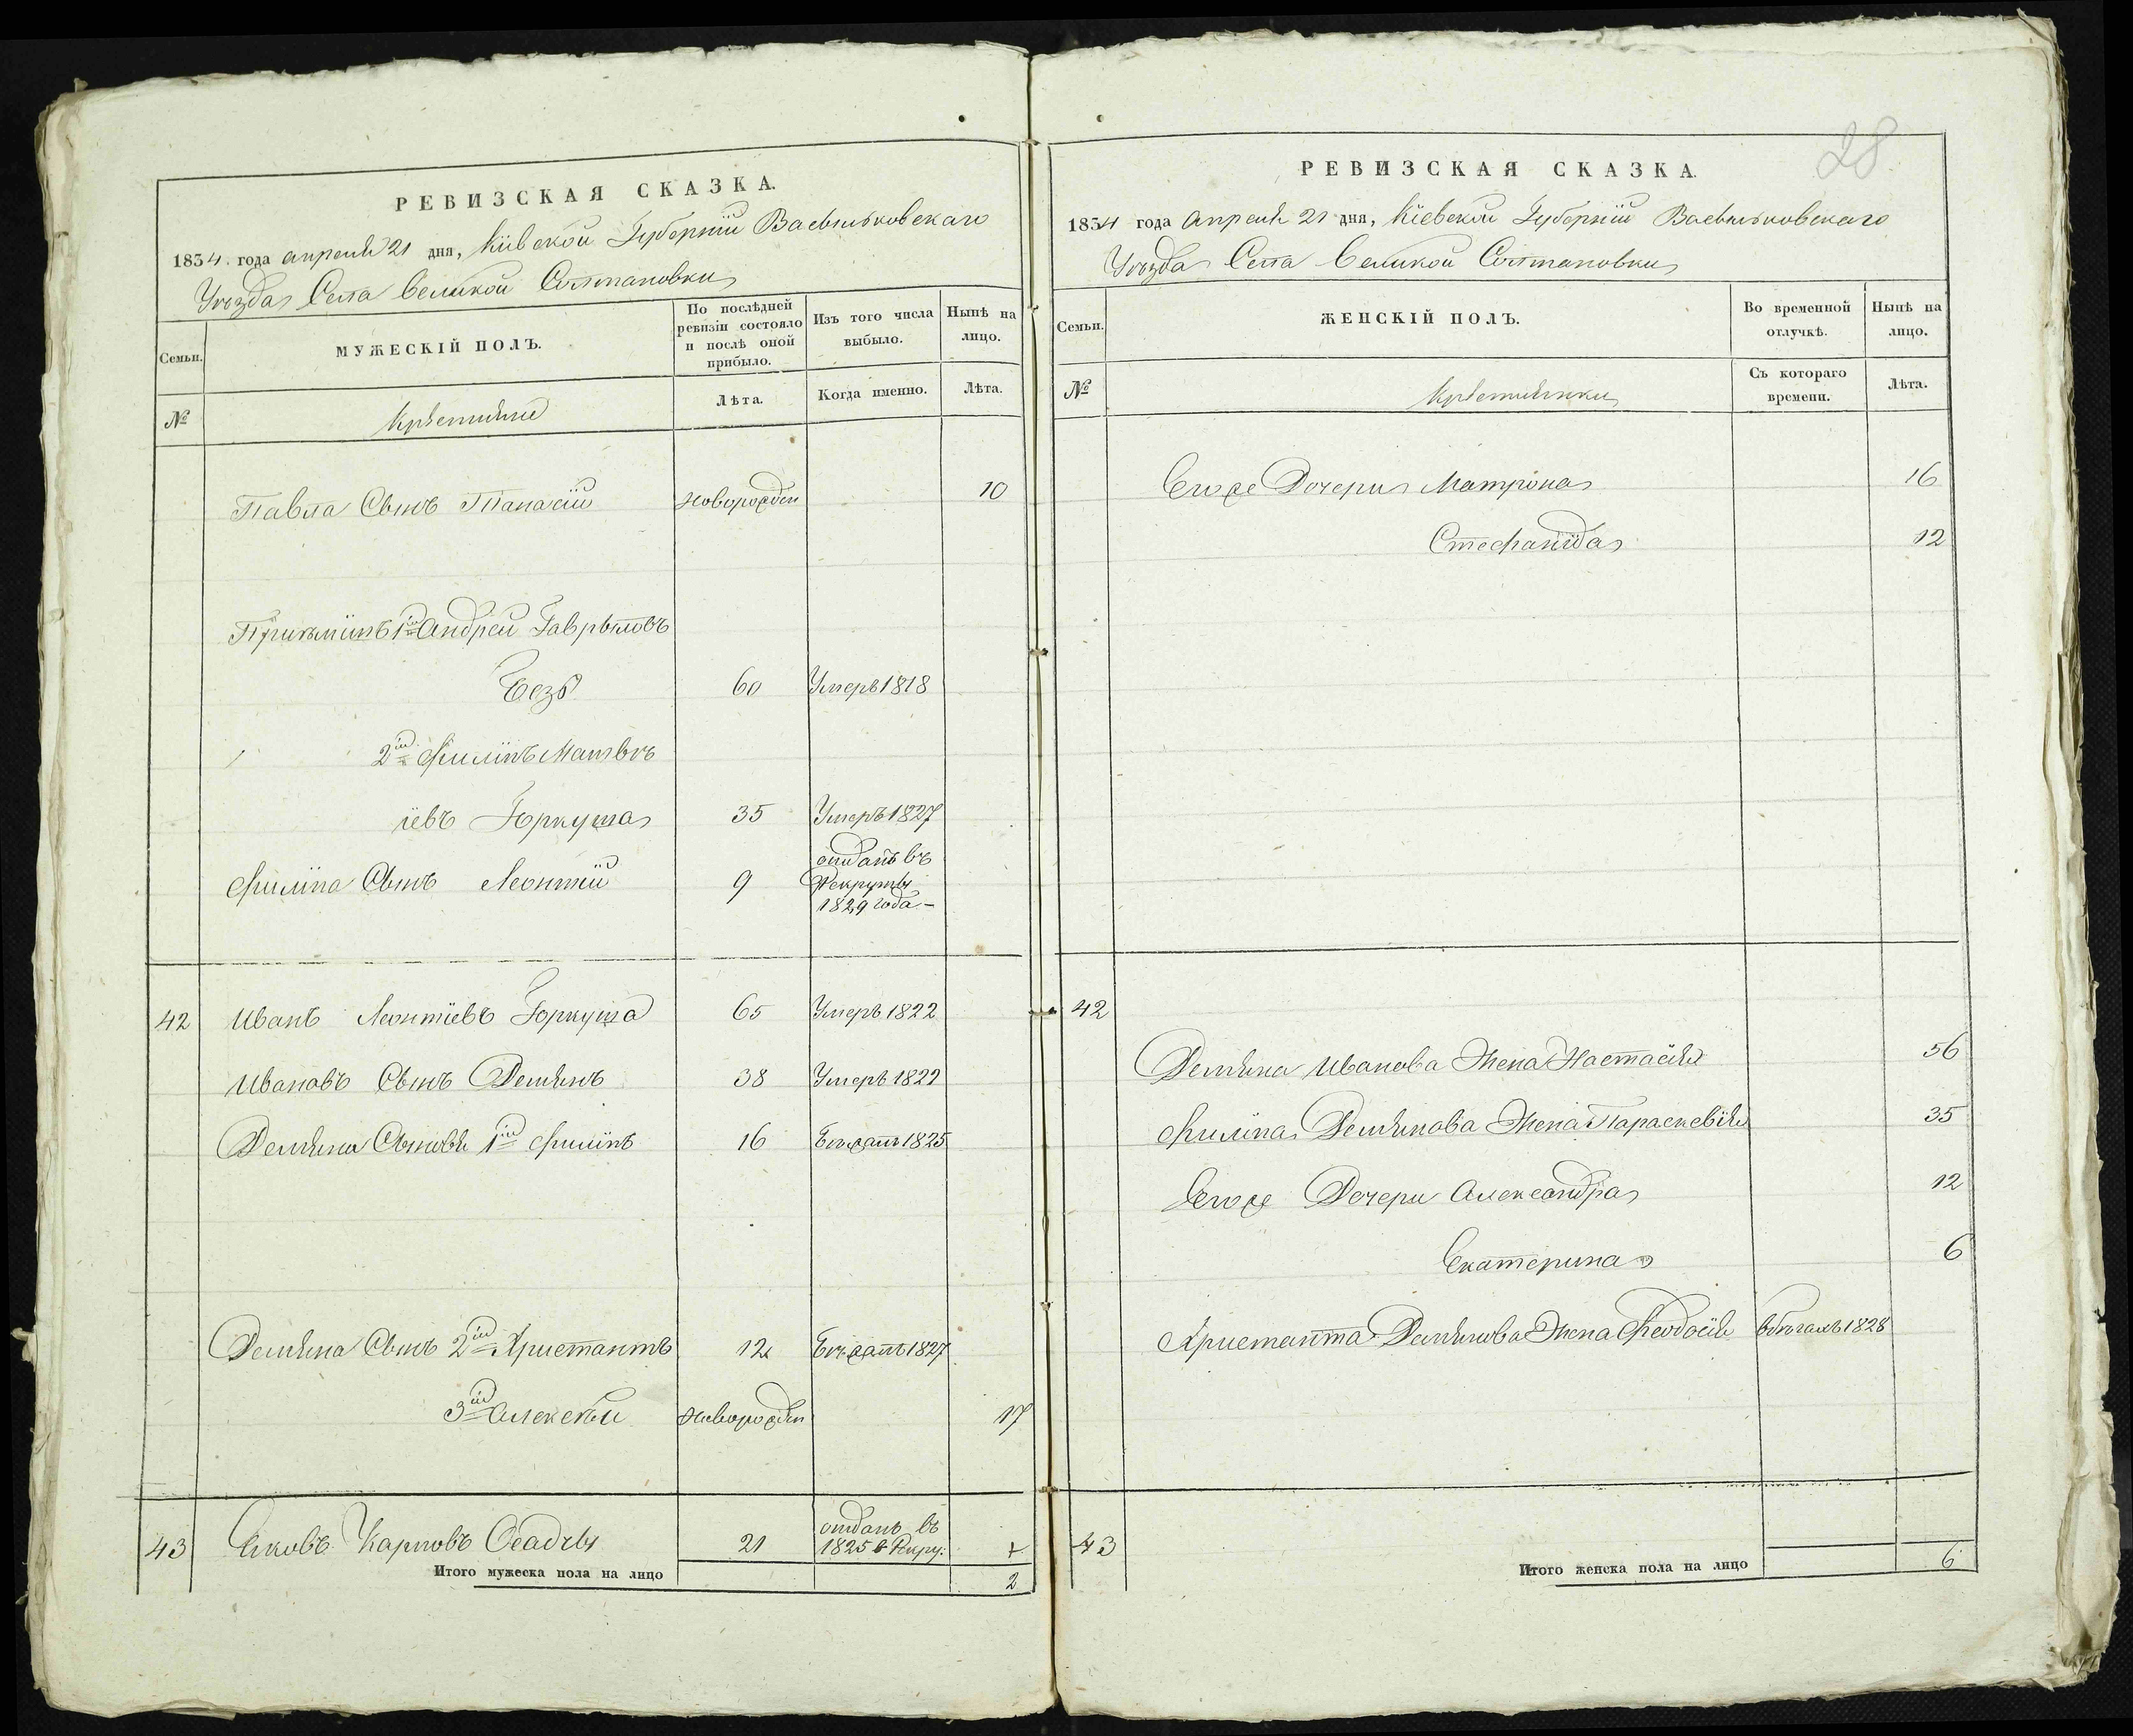 РЕВИЗСКАЯ СКАЗКА.
1834 года апреля 21 дня, Кіевской Губерніи Васильковскаго
Уѣзда Села Великой Солтановки
Семьи.
МУЖЕСКІЙ ПОЛЪ.
По послѣдней ревизіи состояло и послѣ оной прибыло.
Изъ того числа выбыло.
Нынѣ на лицо.
№
Крѣстьяне
Лѣта.
Когда именно.
Лѣта.
Павла Сынъ Панасій новорожден 10
1й Андрей Гаврыловъ
60 Умеръ 1818
2й Филіпъ Матвѣ
іевъ Горкуша 35 Умеръ 1827
отданъ въ
Филіпа Сынъ Леонтій 9 Рекруты
1829 года
42 Иванъ Леонтіевъ Горкуша 65 Умеръ 1822
Ивановъ Сынъ Демянъ 38 Умеръ 1822
Демяна Сыновья 1й Филіпъ 16 Бѣжалъ 1825
Демяна Сынъ 2й Христантъ 12 Бѣжалъ 1827
3й Алексѣй новорожден 17
отданъ въ
43 Яковъ Карповъ Осадчы 21 1825 в Рекру:
Итого мужеска пола на лицо 2
28
РЕВИЗСКАЯ СКАЗКА.
1834 года апреля 21 дня, Кіевской Губерніи Васильковскаго
Уѣзда Села Великой Солтановки
Семьи.
ЖЕНСКІЙ ПОЛЪ.
Во временной отлучкѣ.
Нынѣ на лицо.
№
Крѣстьянки
Съ котораго времени.
Лѣта.
Егоже Дочери Матрона 16
Стефанида 12
42
Демяна Иванова Жена Настасія 56
Филіпа Демянова Жена Параскевія 35
Егоже Дочери Александра 12
Екатерина 6
Христанта Демянова Жена Феодосія вбѣгахъ 1828
43
Итого женска пола на лицо 6